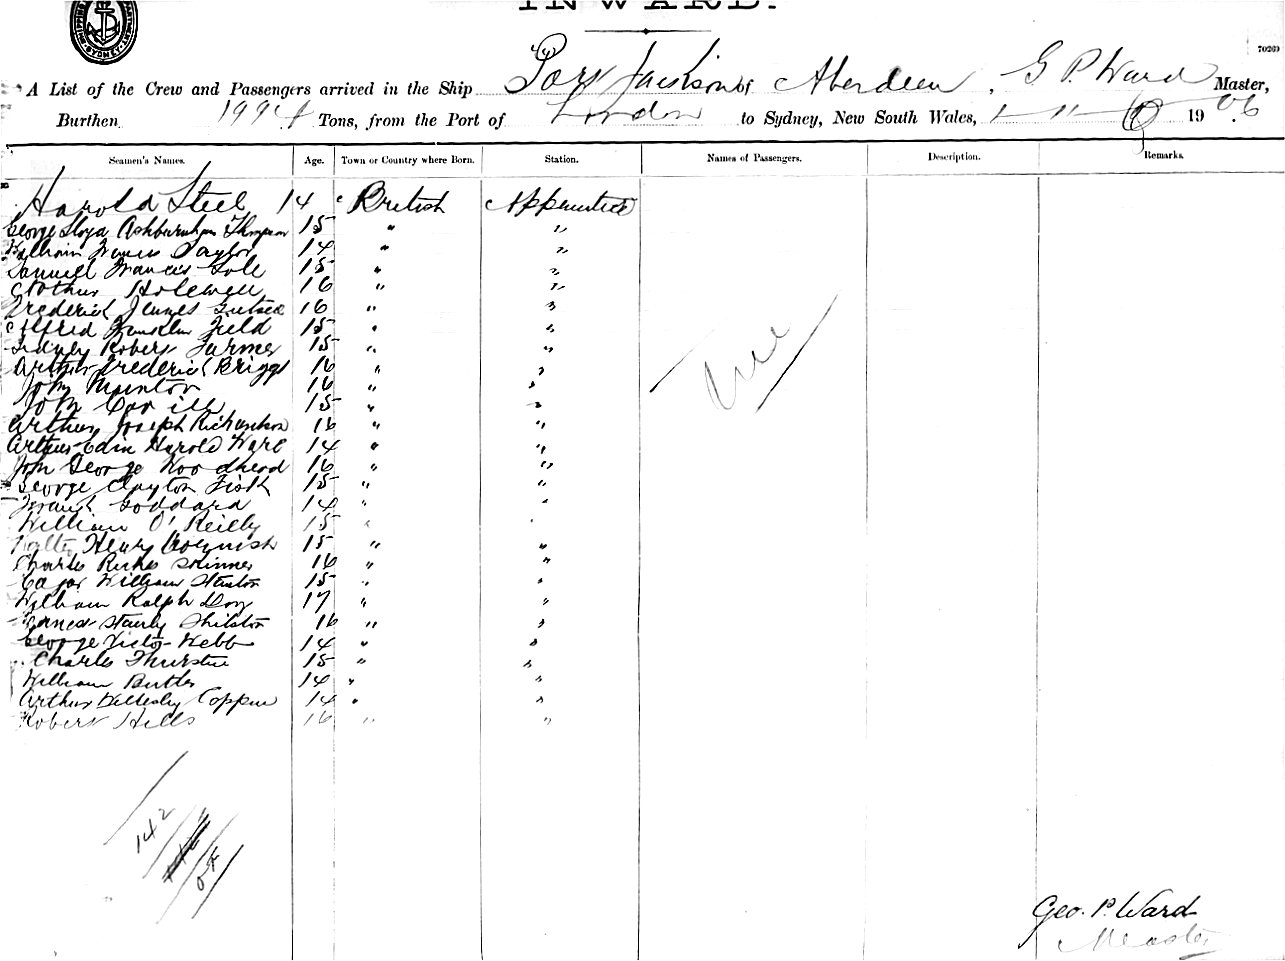 INWARD.
70269
A List of the Crew and Passengers arrived in the Ship Port Jackson of Aberdeen, G P. Ward Master,
Burthen 1994 Tons, from the Port of London to Sydney, New South Wales, 1 - 11 - 1906
Seamen's Names. Age. Town or Country where Born. Station. Names of Passengers. Description. Remarks.
Harold Steel 14 British Apprentice
George Lloyd Ashburnham Thompson 15 " "
William Francis Taylor 14 " "
Samuel Francis Sole 15 " "
Arthur 16 " "
Frederick James 16 " "
Alfred Franklin Field 15 " "
Sidney Robert Farmer 15 " "
Arthur Frederick Briggs 16 " "
John Munton 16 " "
John 15 " "
Arthur Joseph Richardson 16 " "
Arthur Edwin Harold Ware 14 " "
John George Woodhead 16 " "
George Clayton Fisk 15 " "
Frank Goddard 14 " "
William O'Reilly 15 " "
Walter Henry 15 " "
Charles Skinner 16 " "
William 15 " "
William Ralph 17 " "
Ernest Stanly Shilston 16 " "
George Victor Webb 14 " "
Charles Thurstin 15 " "
William Butler 14 " "
Arthur Wellesley Coppin 14 " "
Robert Hills 16 " "
142
Geo. P. Ward
Master